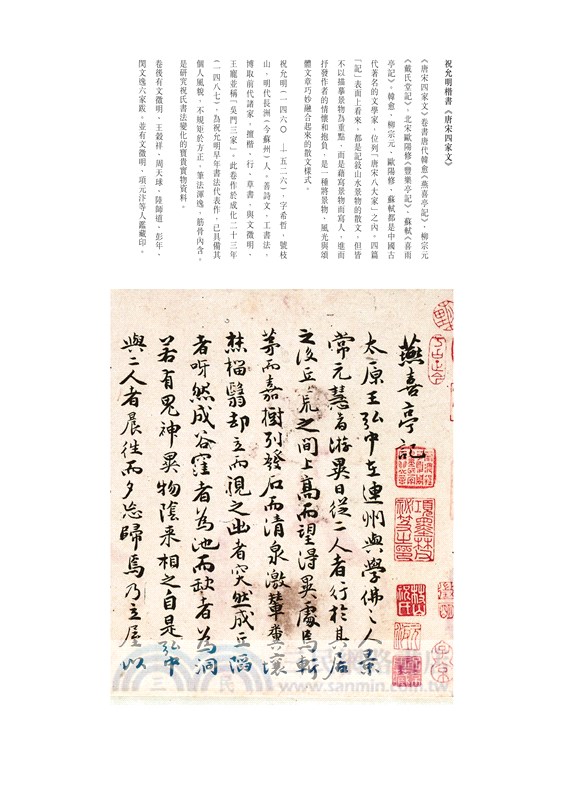 祝允明楷書《唐宋四家文》
《唐宋四家文》卷書唐代韓愈《燕喜亭記》、柳宗元
《戴氏堂記》、北宋歐陽修《豐樂亭記》、蘇軾《喜雨
亭記》。韓愈、柳宗元、歐陽修、蘇軾都是中國古
代著名的文學家,位列「唐宋八大家」之內。四篇
「記」表面上看來,都是記敘山水景物的散文,但皆
不以描摹景物為重點,而是藉寫景物而寫人,進而
抒發作者的情懷和抱負,是一種將景物、風光與頌
體文章巧妙融合起來的散文樣式。
祝允明(一四六〇—一五二六),字希哲,號枝
山,明代長洲(今蘇州)人。善詩文,工書法,
博取前代諸家,擅楷、行、草書,與文徵明、
王寵並稱「吳門三家」。此卷作於成化二十三年
(一四八七),為祝允明早年書法代表作,已具備其
個人風貌,不規矩於方正,筆法渾逸,筋骨內含。
是研究祝氏書法變化的寶貴實物資料。
卷後有文徵明、王榖祥、周天球、陸師道、彭年、
閔文逸六家跋。並有文徵明、項元汴等人鑑藏印。
燕喜亭記
太原王弘中在連州與學佛之人景
常元慧者游異日從二人者行於其居
之後丘荒之間上高而望得異處焉斬
茅而嘉樹列發石而清泉激輦糞壤
焚榴翳却立而視之出者突然成丘陷
者呀然成谷窪者為池而缺者為洞
若有鬼神異物陰來相之自是弘中
與二人者晨往而夕忘歸焉乃立屋以
三民
www.sanmin.com.tw